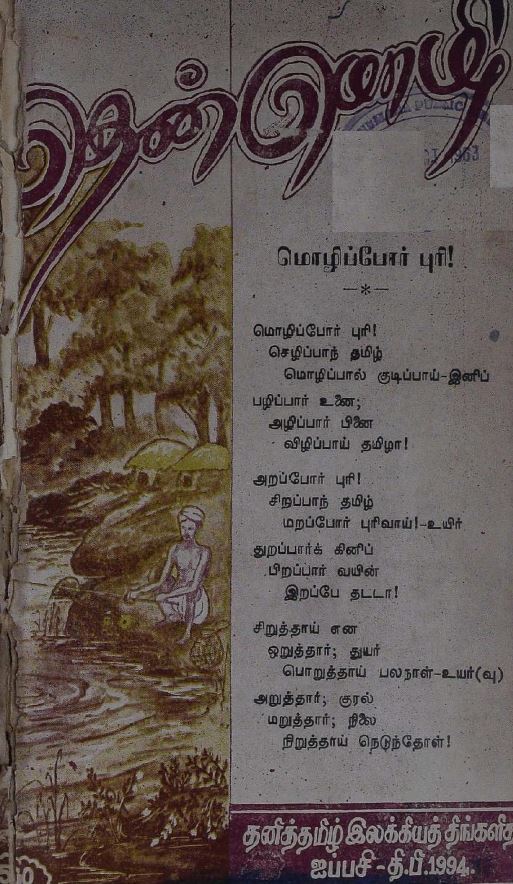 தென்மொழி
மொழிப்போர் புரி!
மொழிப்போர் புரி!
செழிப்பாந் தமிழ்
மொழிப்பால் குடிப்பாய்-இனிப்
பழிப்பார் உனை;
அழிப்பார் பினை
விழிப்பாய் தமிழா!
அறப்போர் புரி!
சிறப்பாந் தமிழ்
மறப்போர் புரிவாய்!-உயிர்
துறப்பார்க் கினிப்
பிறப்பார் வயின்
இறப்பே தடடா!
சிறுத்தாய் என
ஒறுத்தார்; துயர்
பொறுத்தாய் பலநாள்-உயர்(வு)
அறுத்தார்; குரல்
மறுத்தார்; நிலை
நிறுத்தாய் நெடுந்தோள்!
தனித்தமிழ் இலக்கியத் திங்களித
ஐப்பசி-தி.பி.1994.